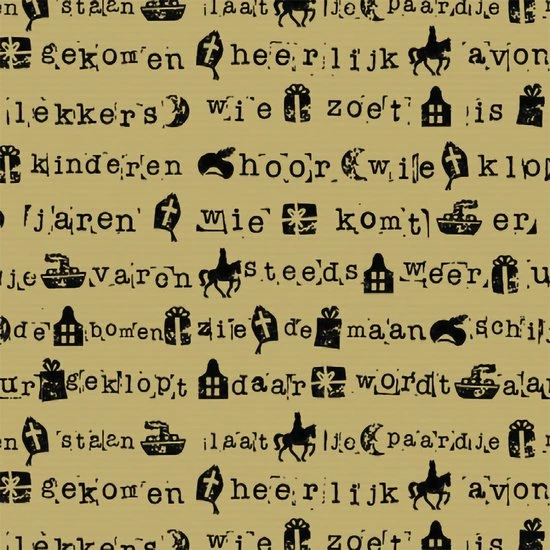 en staan laat je paardje
gekomen heerlijk avon
lekkers wie zoet is
kinderen hoor wie klo
jaren wie komt er
sje varen steeds weer u
de bomen zie de maan schij
ur geklopt daar wordt aa
en staan laat je paardje
gekomen heerlijk avon
lekkers wie zoet is